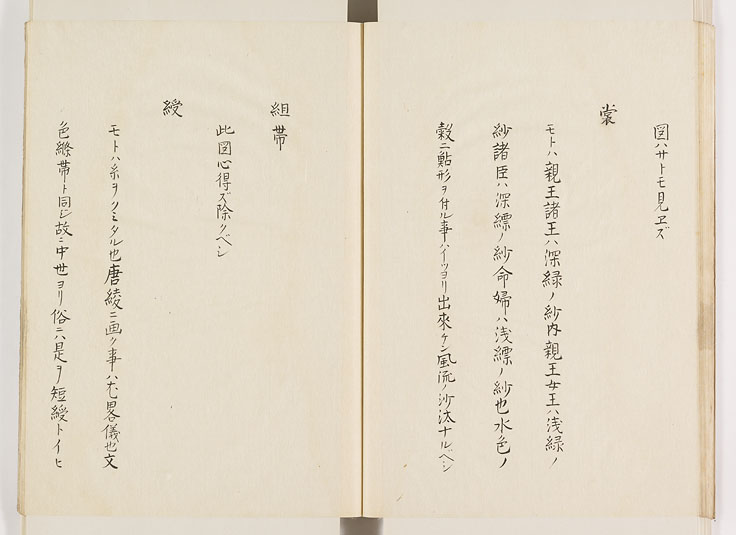 図ハサトモ見ヱズ
裳
モトハ親王諸王ハ深緑ノ紗内親王女王ハ浅緑ノ
紗諸臣ハ深縹ノ紗命婦ハ浅縹ノ紗也水色ノ
縠ニ點形ヲ付ル事ハイツヨリ出來ケン風流ノ沙汰ナルベシ
組帯
此図心得ズ除クベシ
綬
モトハ糸ヲクミタル也唐綾ニ画ク事ハ尤畧儀也文
色纈帯ト同シ故ニ中世ヨリ俗ニハ是ヲ短綬トイヒ